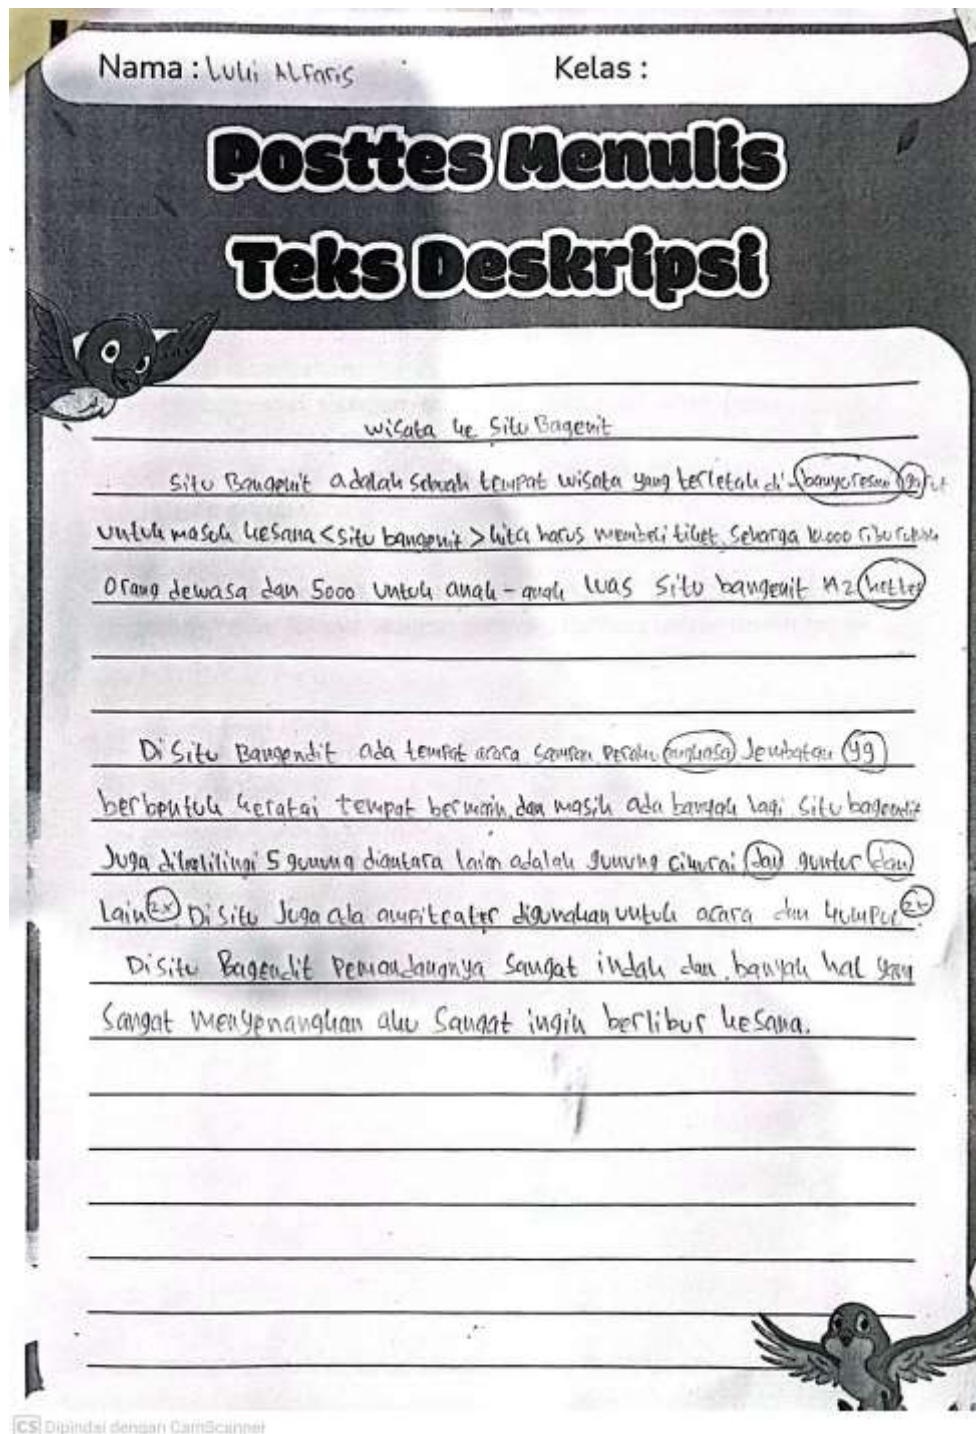 Nama : Luli Alfaris Kelas :
Posttes Menulis
Teks Deskripsi
Wisata ke Situ Bagenit
Situ Bangenit adalah sebuah tempat wisata yang terletak di banyuresmi
untuk masuk kesana <situ bangenit> kita harus membeli tiket seharga 10.000 ribu
orang dewasa dan 5000 untuk anak-anak luas situ bangenit
Di Situ Bangendit ada tempat acara sampan perahu Jembatan yg
berbentuk keratai tempat bermain, dan masih ada banyak lagi situ bagendit
Juga dikelilingi 5 gunung diantara lain adalah gunung cikurai, dan guntur dan
Lain 2x. Di Situ Juga ada ampiteater digunakan untuk acara dan kumpul 2x
Di Situ Bagendit Pemandangnya Sangat indah dan banyak hal yang
Sangat menyenangkan aku Sangat ingin berlibur kesana.
CS Dipindai dengan CamScanner